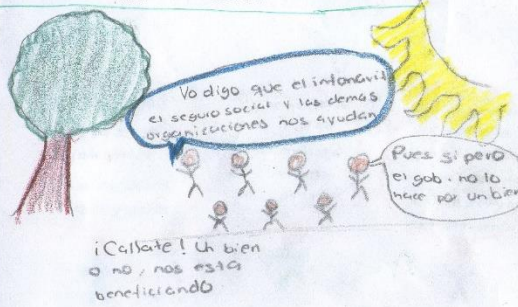 Yo digo que el infonavit
el seguro social y las demas
organicaciones nos ayudan
Pues si pero
el gob. no lo
hace por un bien
¡Callate! Un bien
o no, nos esta
beneficiando